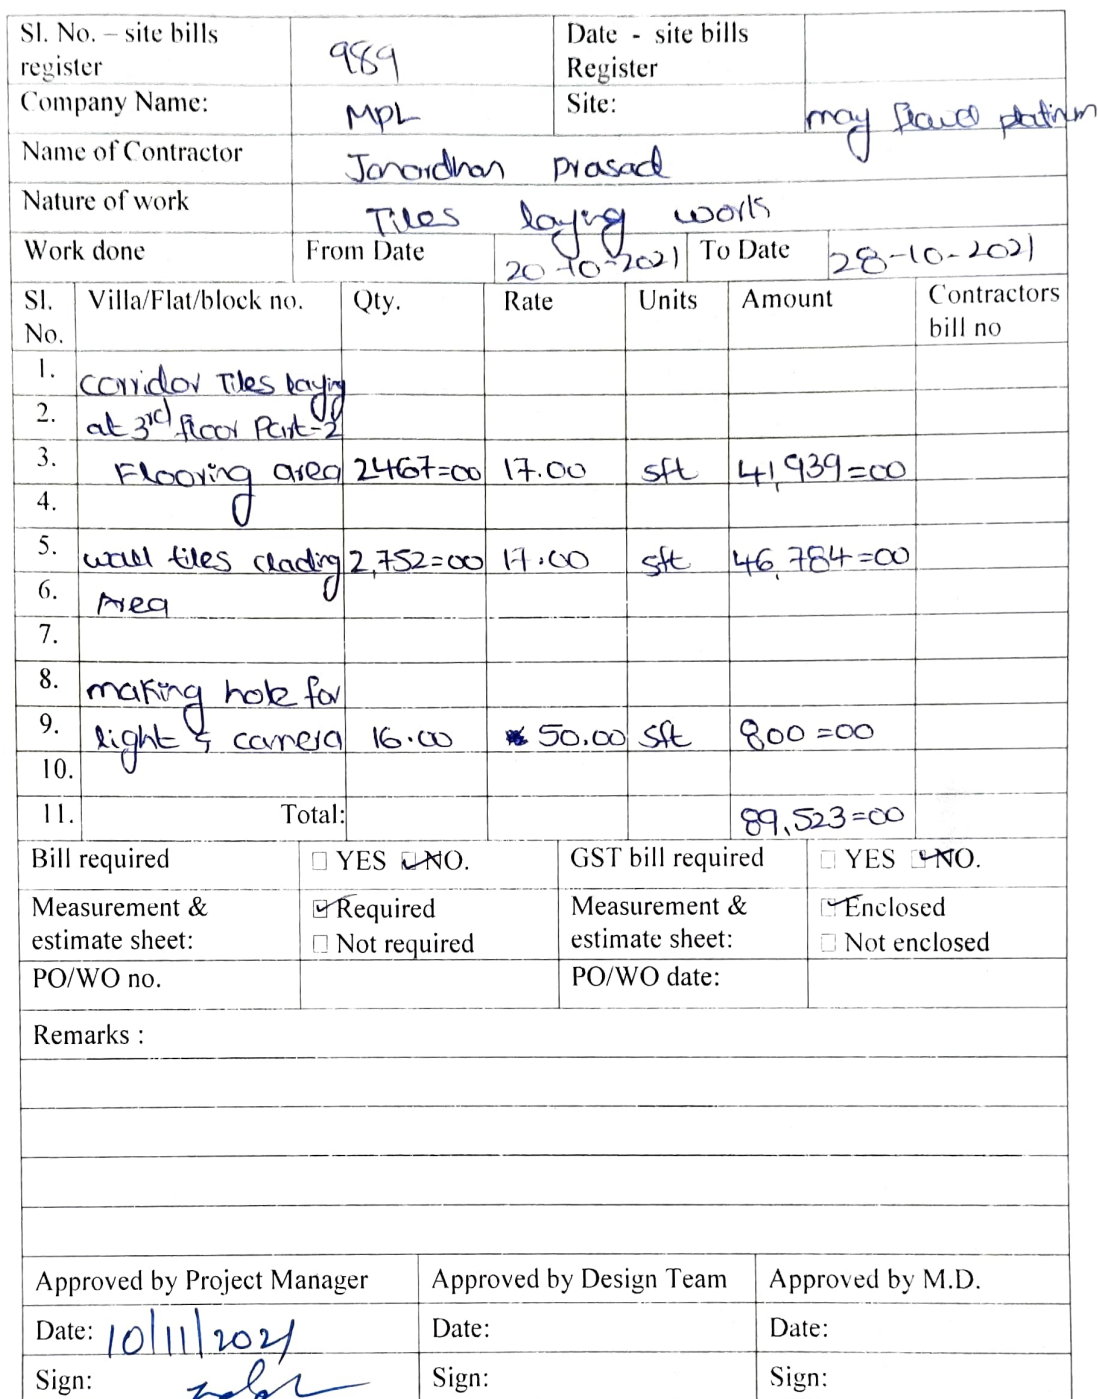 Sl. No. – site bills register 989 Date - site bills Register
Company Name: MPL Site: may flawd platinum
Name of Contractor Janardhan Prasad
Nature of work Tiles laying work
Work done From Date 20-10-2021 To Date 28-10-2021
Sl. No. Villa/Flat/block no. Qty. Rate Units Amount Contractors bill no
1. corridor Tiles laying
2. at 3rd floor Part-2
3. Flooring area 2467=00 17.00 sft 41,939=00
4.
5. wall tiles clading 2,752=00 17.00 sft 46,784=00
6. Area
7.
8. making hole for
9. light & camera 16.00 50.00 sft 800=00
10.
11. Total: 89,523=00
Bill required ☐ YES ☑ NO. GST bill required ☐ YES ☑ NO.
Measurement & estimate sheet: ☑ Required ☐ Not required Measurement & estimate sheet: ☑ Enclosed ☐ Not enclosed
PO/WO no. PO/WO date:
Remarks :
Approved by Project Manager Approved by Design Team Approved by M.D.
Date: 10/11/2021 Date: Date:
Sign: Sign: Sign: